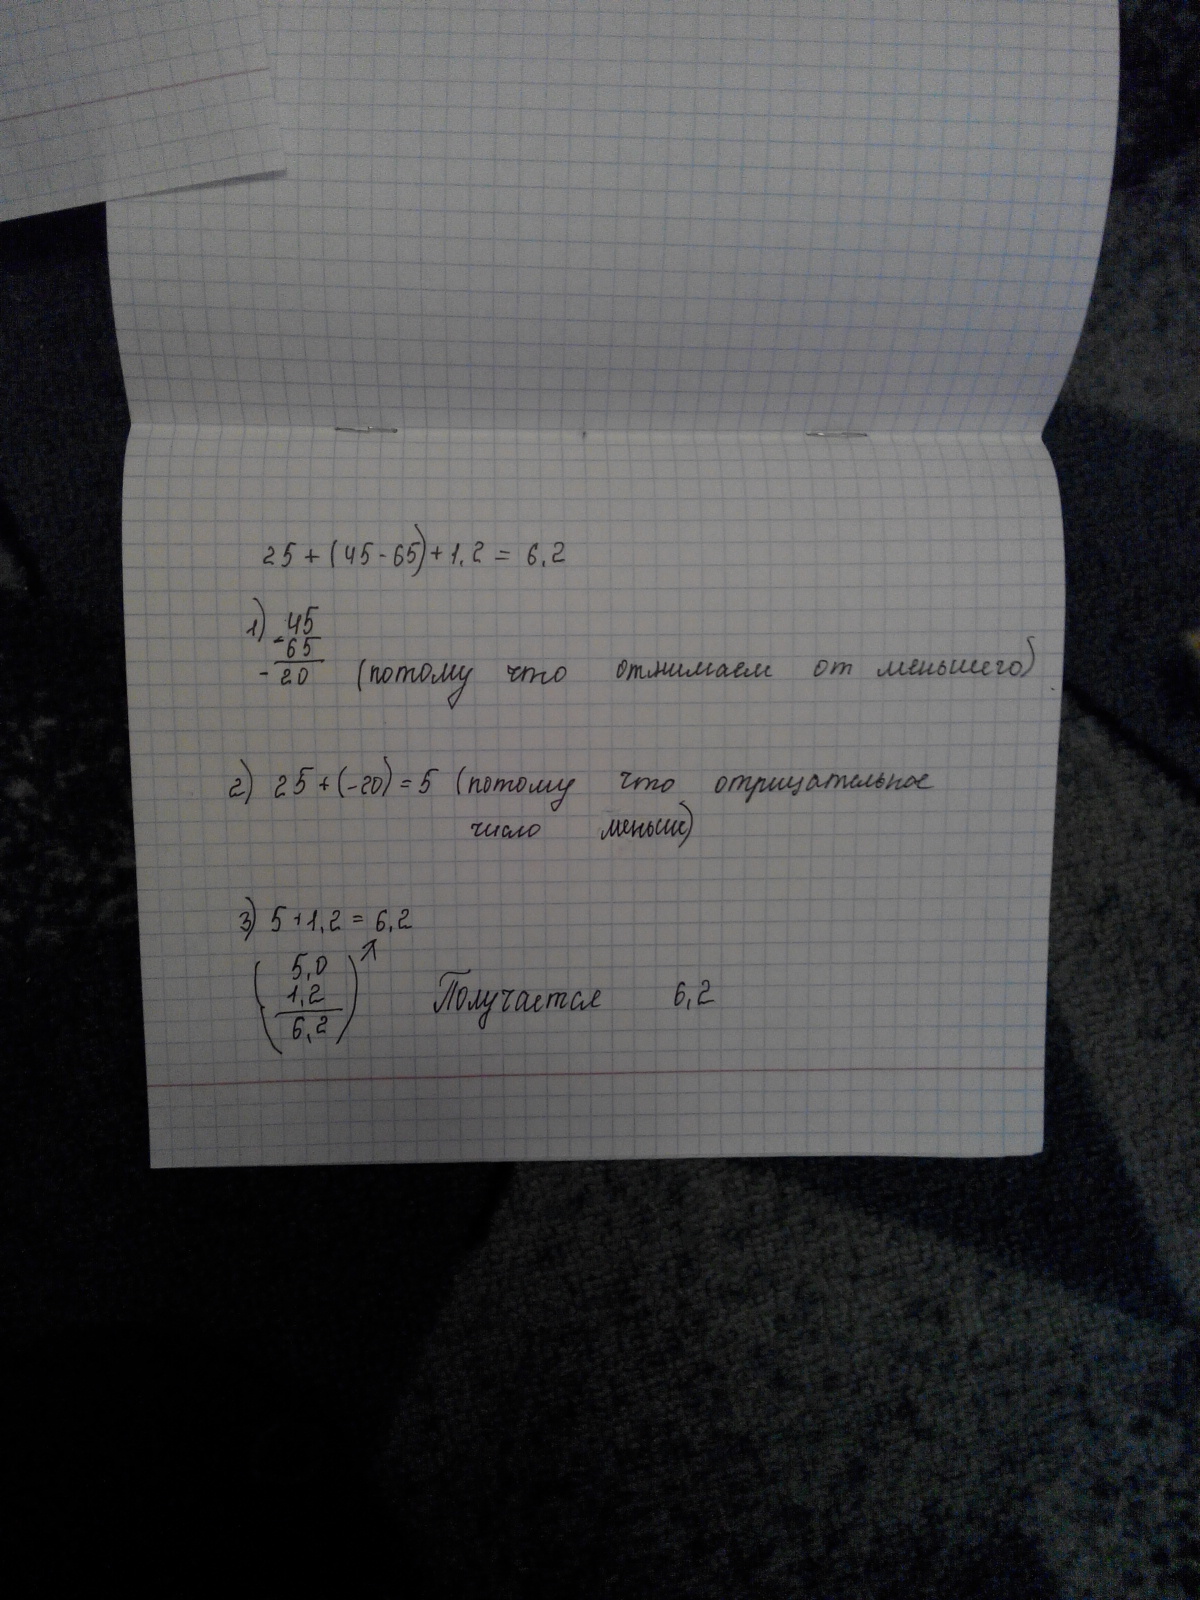 25 + (45 - 65) + 1,2 = 6,2
1) 45
- 65
- 20 (потому что отнимаем от меньшего)
2) 25 + (-20) = 5 (потому что отрицательное
число меньше)
3) 5 + 1,2 = 6,2
5,0
1,2
6,2
Получается 6,2